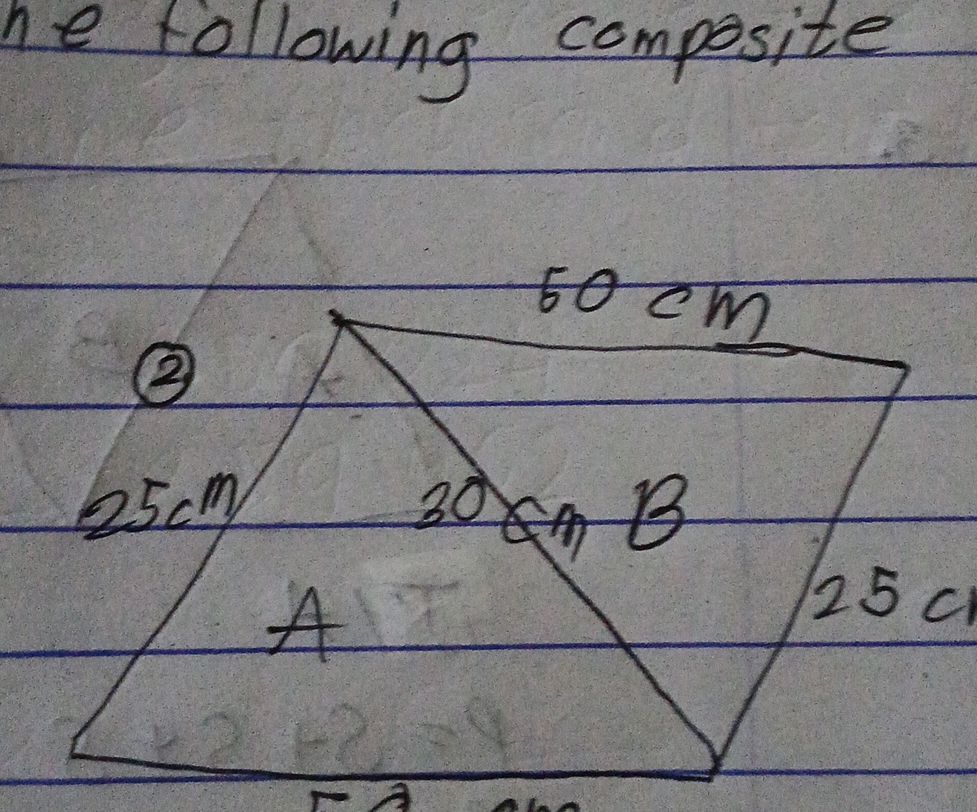 he following composite
50 cm
②
25cm
30 cm B
25 c
A